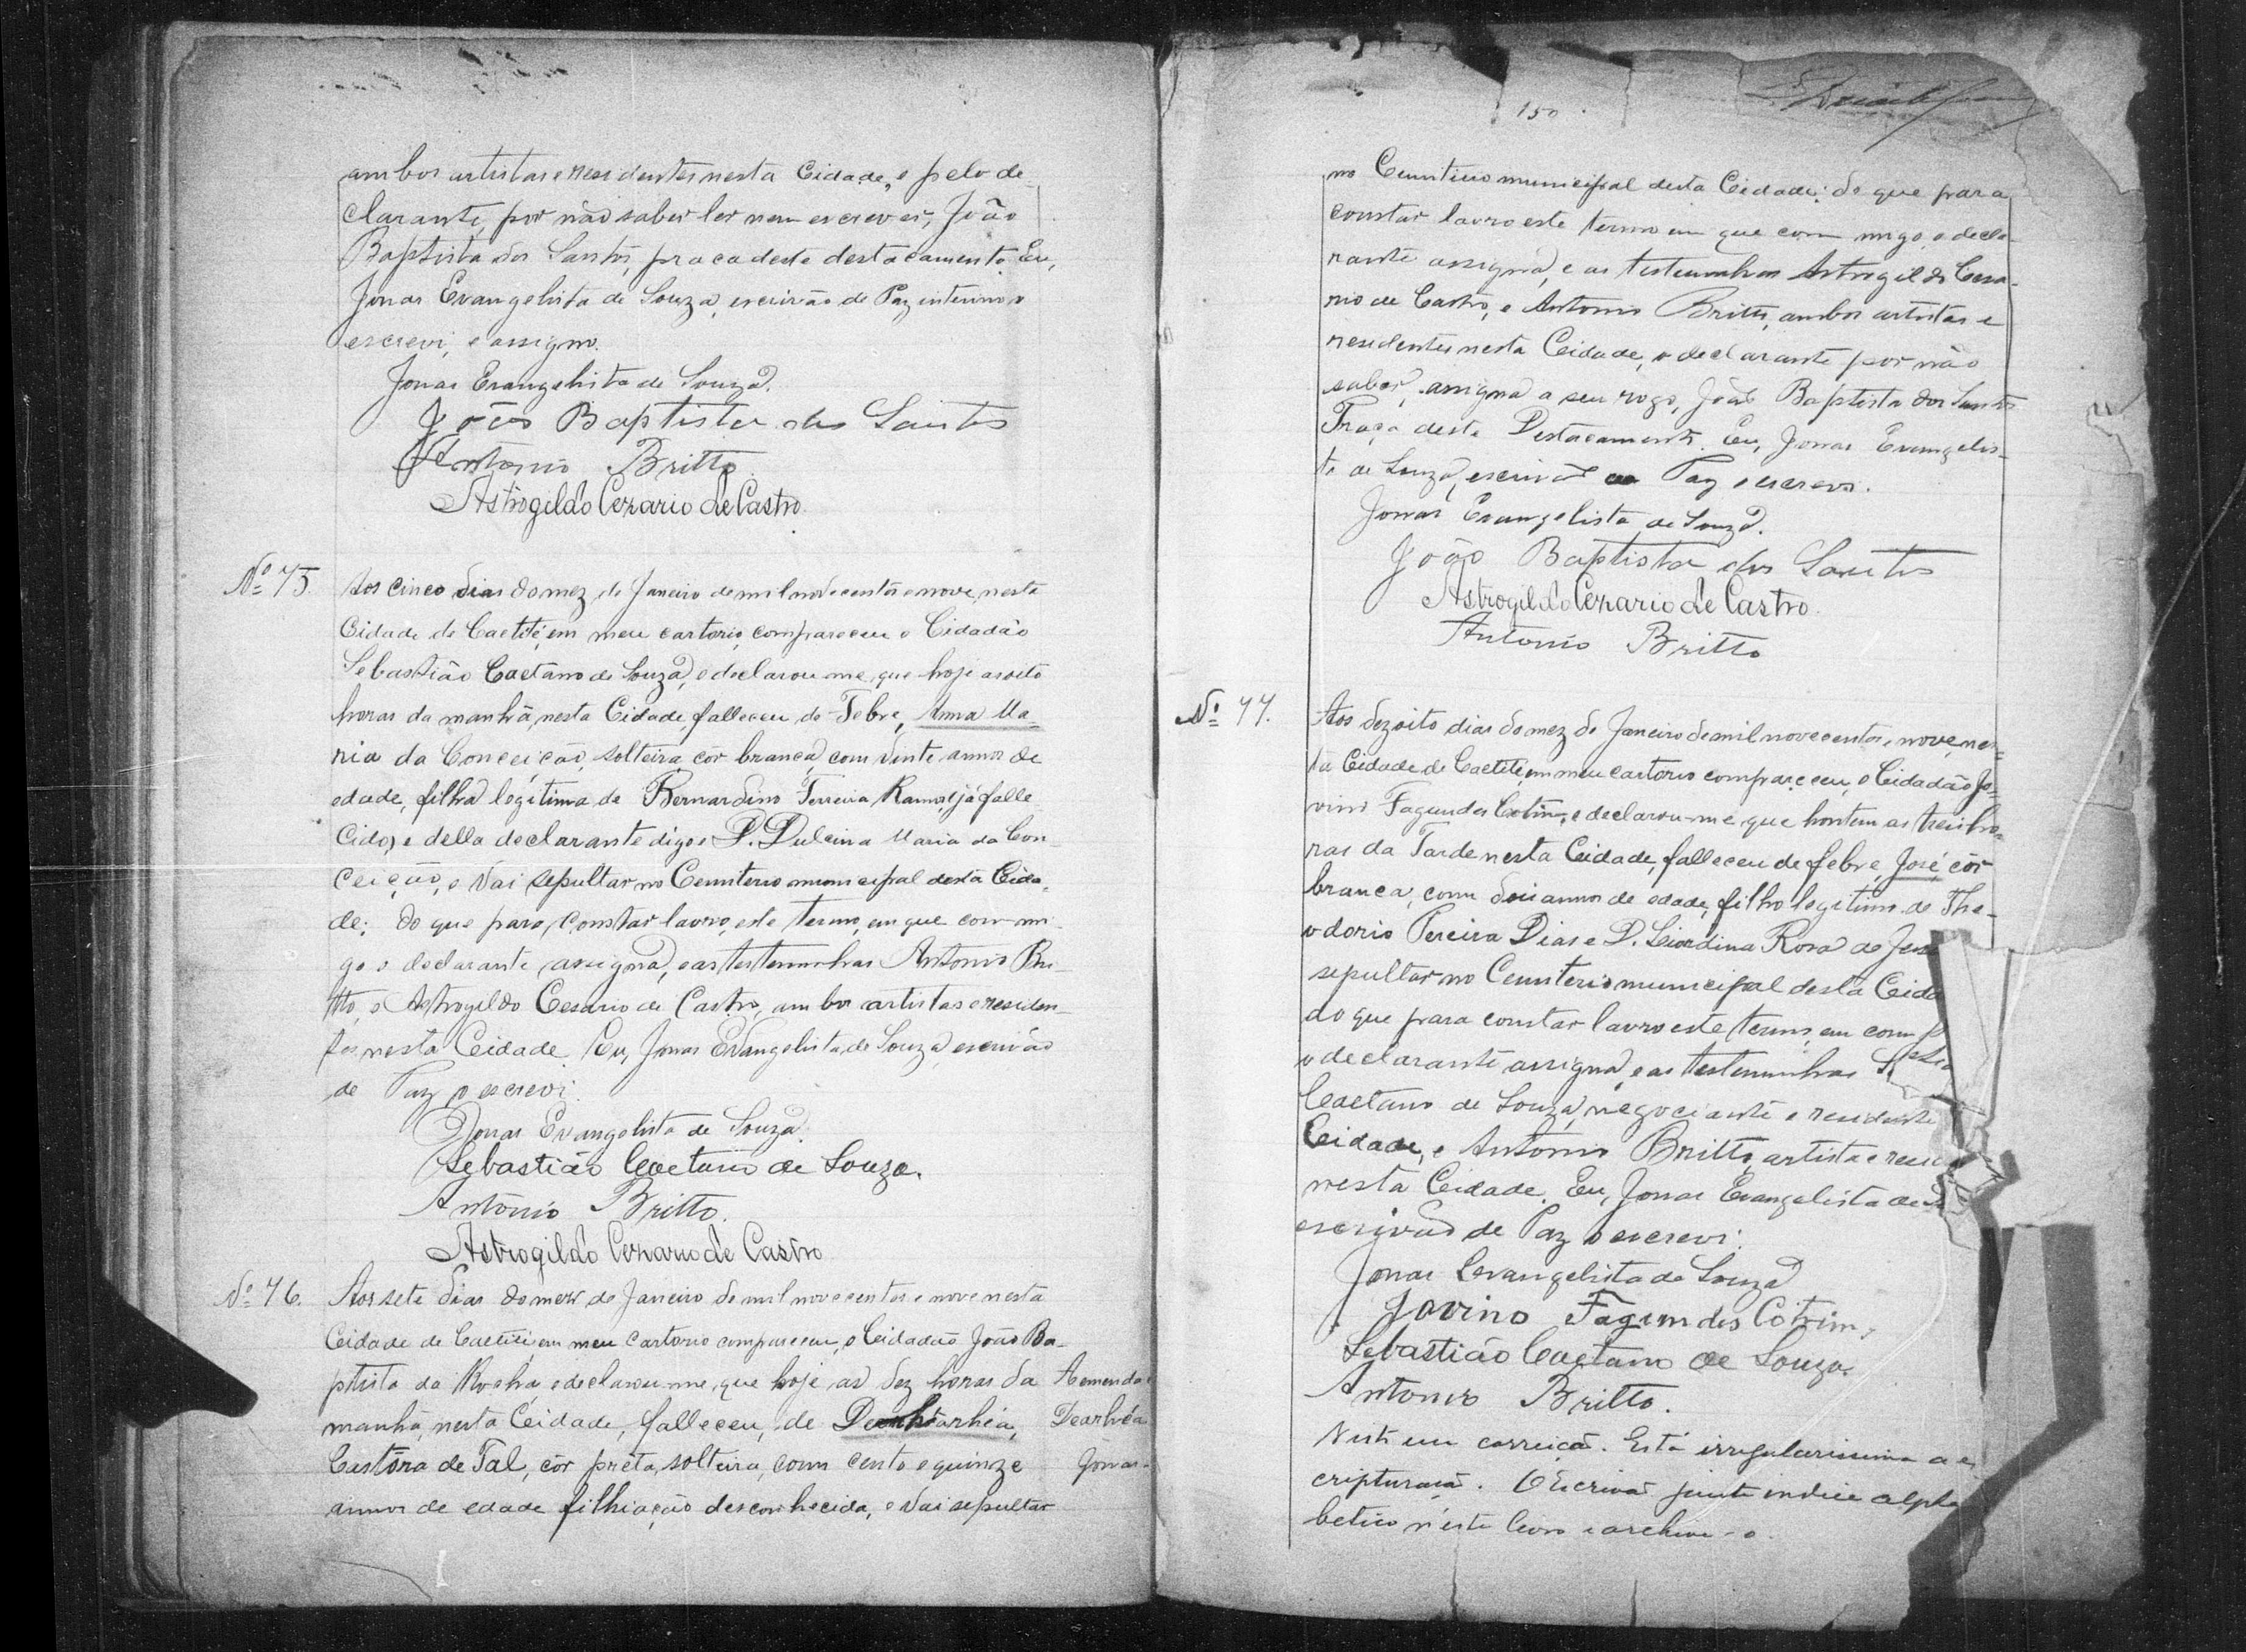 ambos artistas e residentes nesta Cidade, e pelo de
clarante, por não saber ler nem escrever, João
Baptista dos Santos, praça deste destacamento. Eu,
Jonas Evangelista de Souza, escrivão de Paz interino o
escrevi, e assigno.
Jonas Evangelista de Souza.
João Baptista dos Santos
Antonio Britto
Astrogildo Cezario de Castro.
Nº 75. Aos cinco dias do mez de Janeiro de mil novecentos e nove, nesta
Cidade de Caetité, em meu cartorio, compareceu o Cidadão
Sebastião Caetano de Souza, e declarou-me, que hoje as oito
horas da manhã, nesta Cidade, falleceu de Febre, Anna Ma-
ria da Conceição, solteira, côr branca, com vinte annos de
edade, filha legitima de Bernardino Ferreira Ramos, já falle
cido, e della declarante digo e D. Dulcina Maria da Con-
ceição, e vai sepultar no Cemiterio municipal desta Cida-
de; do que para constar lavro este termo, em que com mi-
go o declarante assigna, e as testemunhas Antonio Bri-
tto, e Astrogildo Cesario de Castro, ambos artistas e residen-
tes nesta Cidade. Eu, Jonas Evangelista de Souza, escrivão
de Paz o escrevi.
Jonas Evangelista de Souza.
Sebastião Caetano de Souza.
Antonio Britto.
Astrogildo Cezario de Castro
Nº 76. Aos sete dias do mez de Janeiro de mil novecentos e nove nesta
Cidade de Caetité, em meu cartorio compareceu, o Cidadão João Ba-
ptista da Rocha, e declarou-me, que hoje as dez horas da
manhã, nesta Cidade, falleceu, de
Castôra de Tal, côr preta, solteira, com cento e quinze
annos de edade filhiação desconhecida, e vai sepultar
Aemenda
Dearhéa
Jonas
150
no Cemiterio municipal desta Cidade; do que para
constar lavro este termo em que com migo o decla-
rante assigna, e as testemunhas Astrogildo Cesa-
rio de Castro, e Antonio Britto, ambos artistas e
residentes nesta Cidade, o declarante por não
saber, assigna a seu rogo, João Baptista dos Santos
Praça deste Destacamento. Eu, Jonas Evangelis-
ta de Souza, escrivão de Paz o escrevi.
Jonas Evangelista de Souza.
João Baptista dos Santos
Astrogildo Cezario de Castro.
Antonio Britto
Nº 77. Aos dezoito dias do mez de Janeiro de mil novecentos, e nove, nes-
ta Cidade de Caetité em meu cartorio compareceu, o Cidadão Jo-
vino Fagundes Cotrim, e declarou-me que hontem as treis ho-
ras da Tarde nesta Cidade, falleceu de febre, José, côr
branca, com dois annos de edade, filho legitimo de The-
odorio Pereira Dias e D. Leordina Rosa de Jesu
sepultar no Cemiterio municipal desta Cida
do que para constar lavro este termo, em com
o declarante assigna, e as testemunhas
Caetano de Souza, negociante e residente
Cidade, e Antonio Britto, artista e resi
nesta Cidade. Eu, Jonas Evangelista de
escrivão de Paz o escrevi.
Jonas Evangelista de Souza
Jovino Fagundes Cotrim,
Sebastião Caetano de Souza.
Antonio Britto.
Visto em correição. Está irregularissima a es
cripturação. O Escrivão junte indice alpha
betico n'este livro e archive-o.